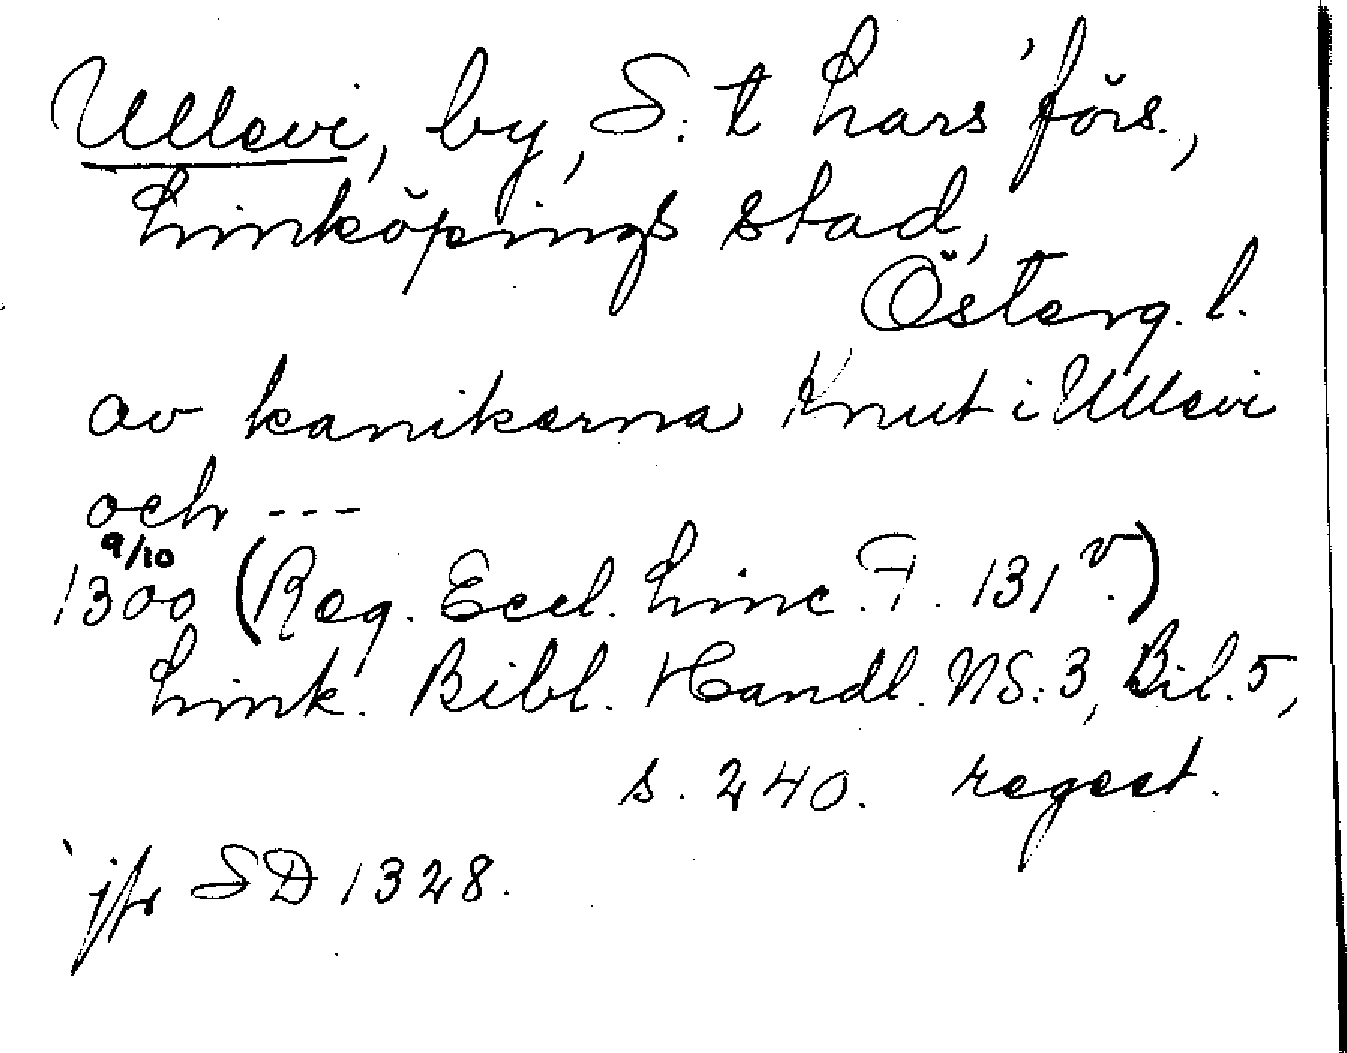 Ullevi, by, S:t Lars' förs.,
Linköpings stad,
Österg. l.
av kanikerna Knut i Ullevi
och ---
9/10
1300 (Reg. Eccl. Linc. F. 131 v.)
Link. Bibl. Handl. NS: 3, Bil. 5,
s. 240. regest.
jfr SD 1328.